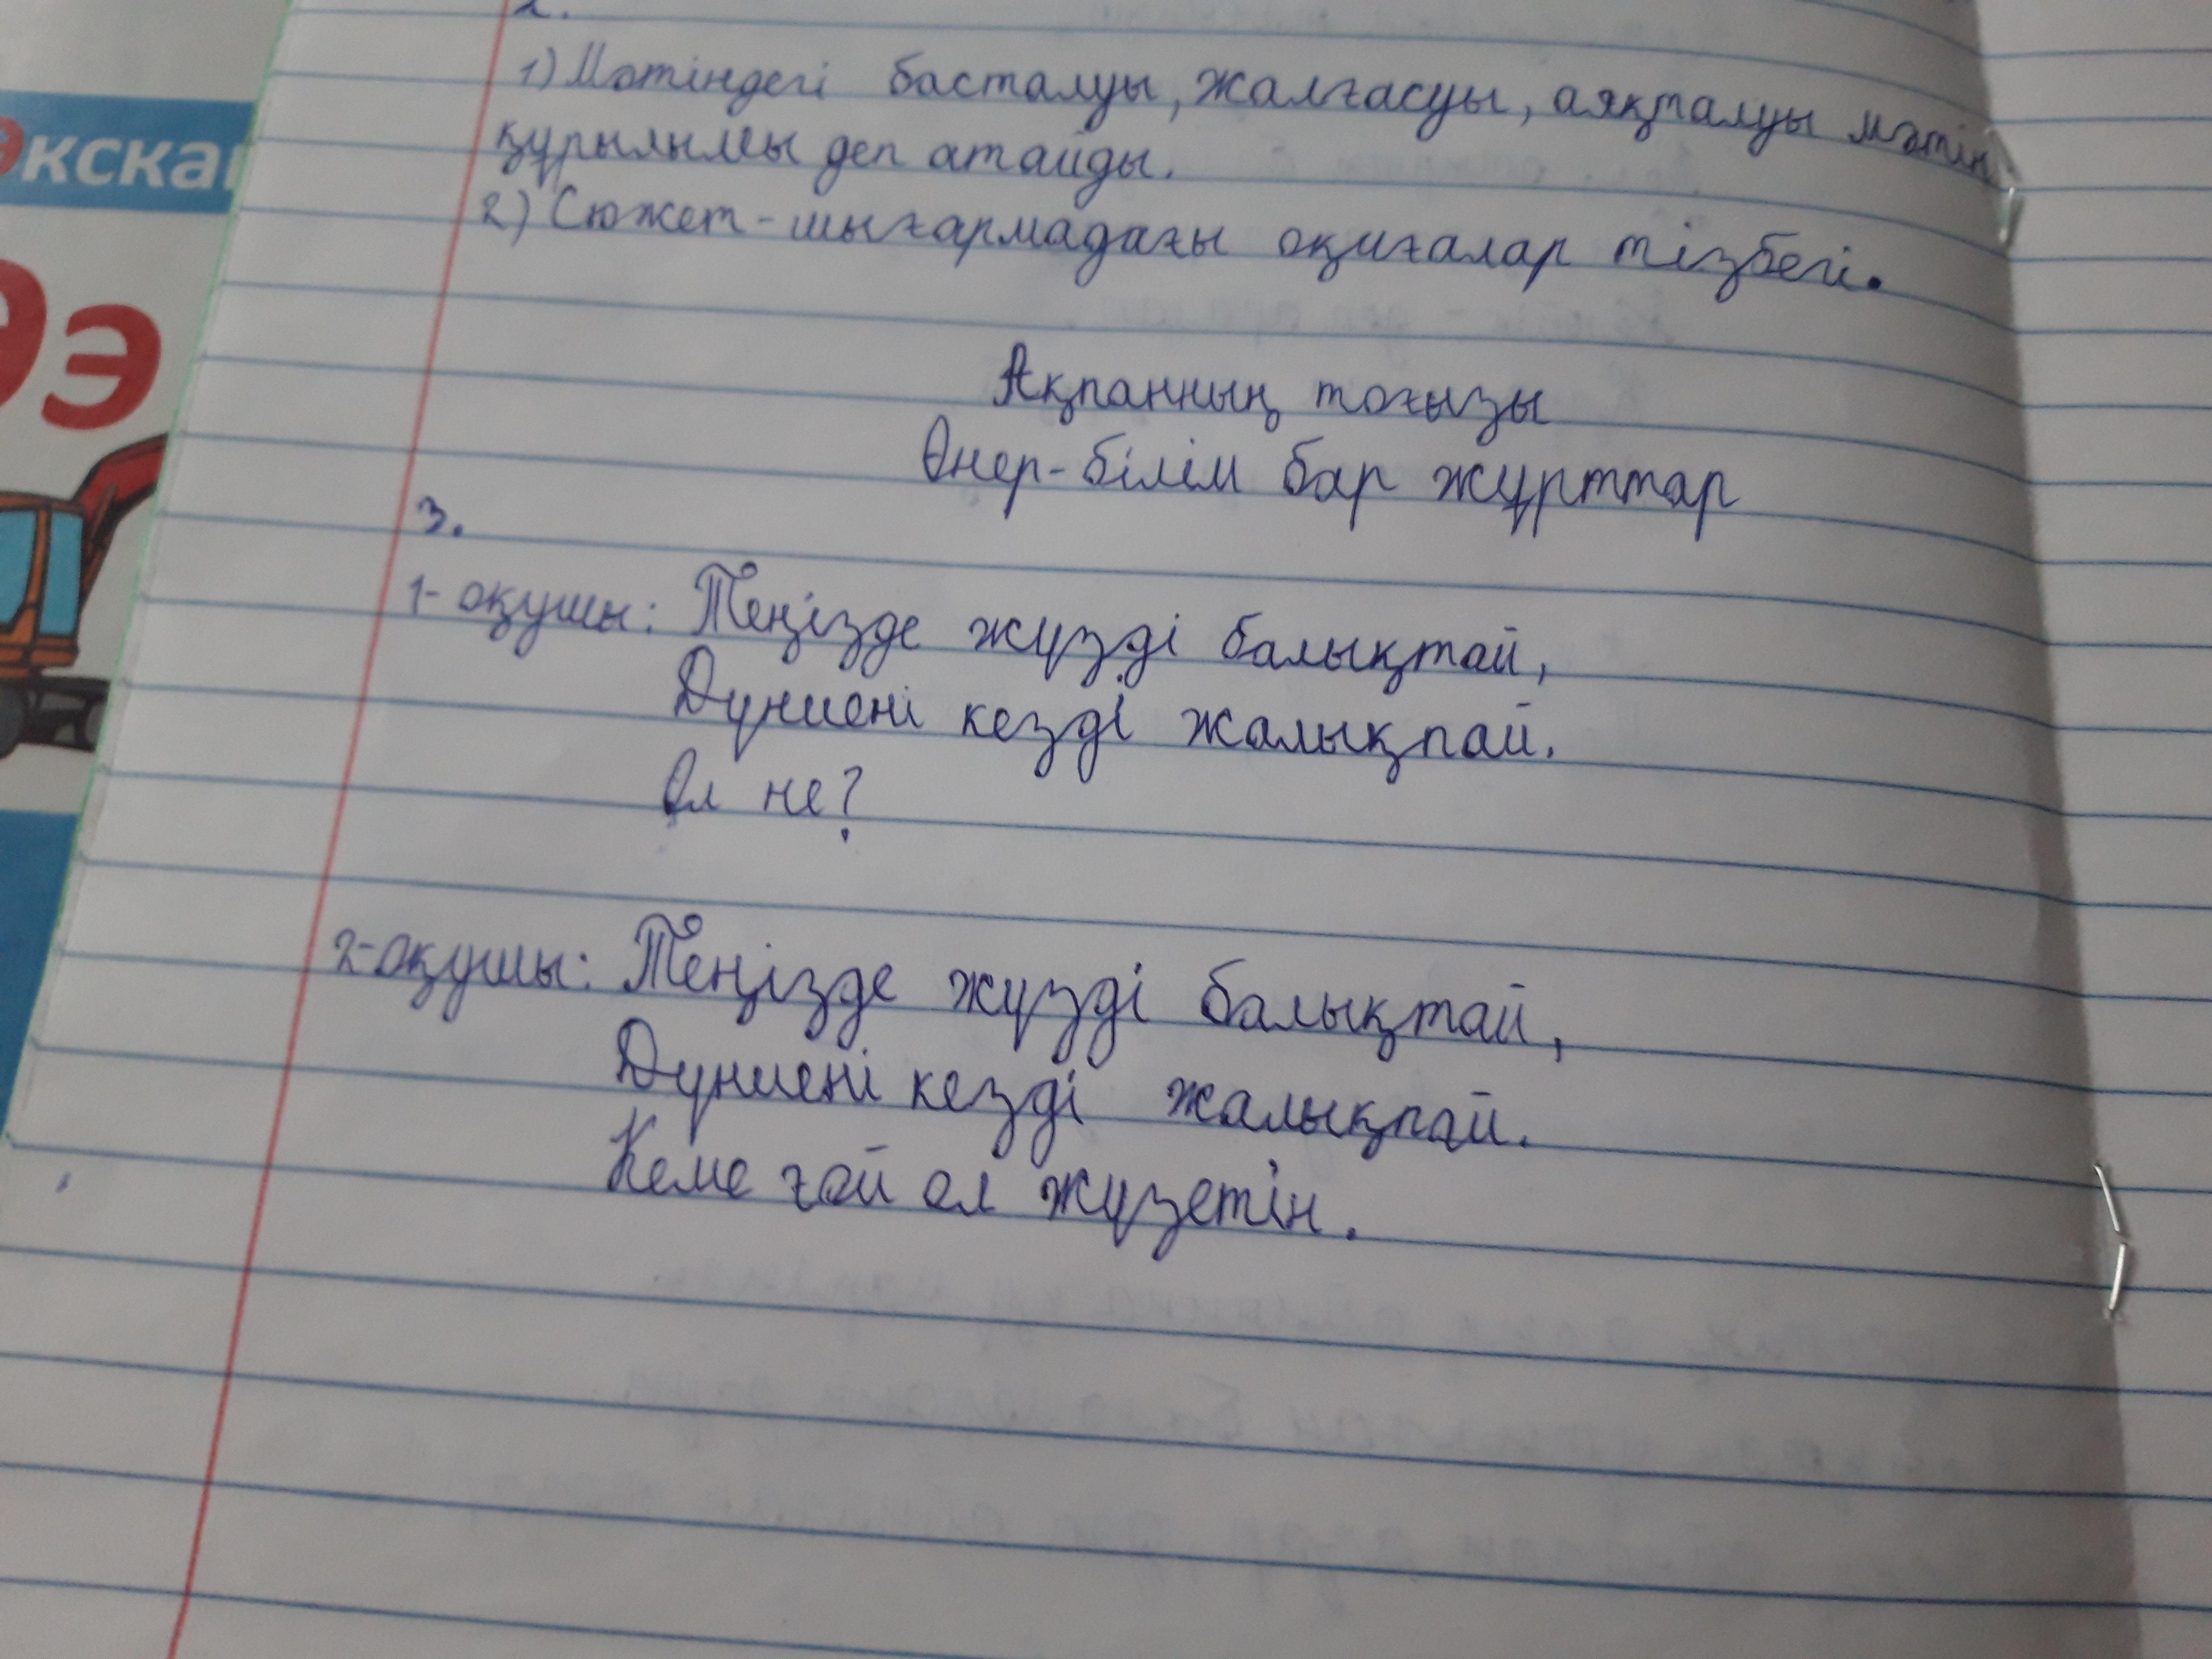 2.
1) Мәтіндегі басталуы, жалғасуы, аяқталуы мәтін
құрылымы деп атайды.
2) Сюжет - шығармадағы оқиғалар тізбегі.
Ақпанның тоғызы
Өнер-білім бар жұрттар
3.
1-оқушы: Теңізде жүзді балықтай,
Дүниені кезді жалықпай.
Ол не?
2-оқушы: Теңізде жүзді балықтай,
Дүниені кезді жалықпай.
Кеме ғой ол жүзетін.
Экска
Ээ